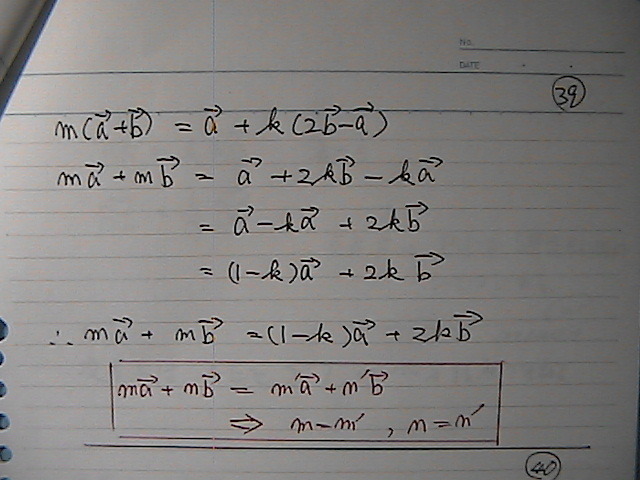 No.
DATE
39
m(a⃗+b⃗) = a⃗ + k(2b⃗-a⃗)
ma⃗ + mb⃗ = a⃗ + 2kb⃗ - ka⃗
= a⃗ - ka⃗ + 2kb⃗
= (1-k)a⃗ + 2k b⃗
∴ ma⃗ + mb⃗ = (1-k)a⃗ + 2kb⃗
ma⃗ + nb⃗ = m′a⃗ + n′b⃗
⇒ m=m′ , n=n′
40